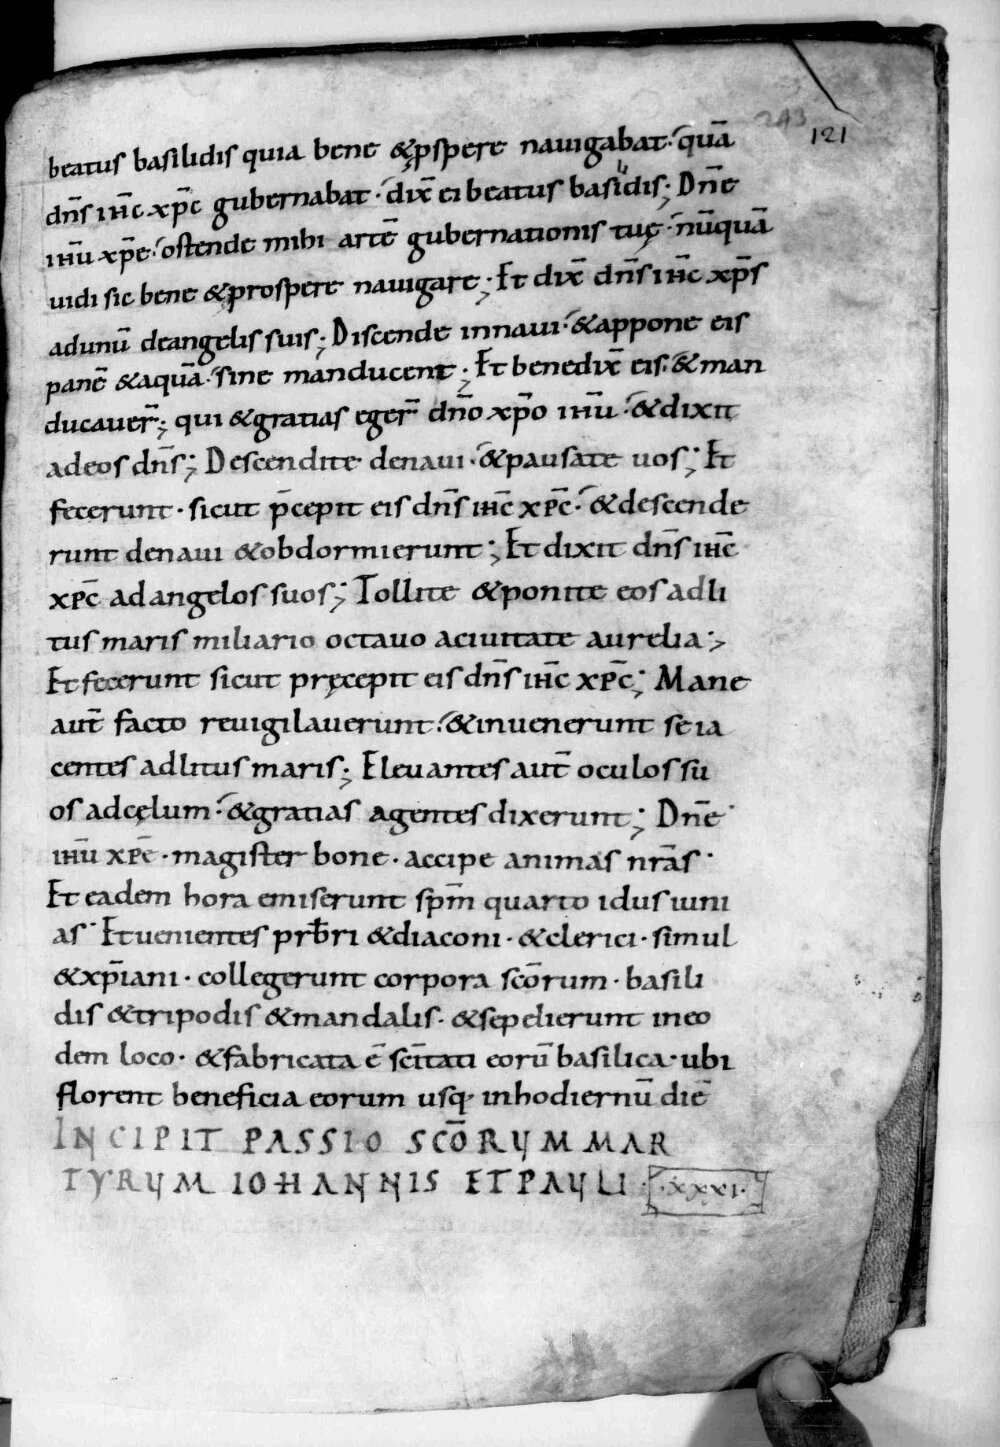 243
121
beatus basilidis quia bene &ꝓspere nauigabat· quā
dn̄s ih̄c xp̄c gubernabat· dix̄ ei beatus basilidis; Dn̄e
ih̄u xp̄e· ostende mihi artē gubernationis tuę· nūquā
uidi sic bene &prospere nauigare; Et dix̄ dn̄s ih̄c xp̄s
adunū deangelis suis; Discende innaui· &appone eis
panē &aquā· sine manducent; Et benedix̄ eis· &man
ducauer̄; qui &gratias eger̄ dn̄o xp̄o ih̄u· &dixit
adeos dn̄s; Descendite denaui· &pausate uos; Et
fecerunt· sicut p̄cepit eis dn̄s ih̄c xp̄c· &descende
runt denaui &obdormierunt; Et dixit dn̄s ih̄c
xp̄c ad angelos suos; Tollite &ponite eos adli
tus maris miliario octauo aciuitate aurelia;
Et fecerunt sicut pręcepit eis dn̄s ih̄c xp̄c; Mane
aut̄ facto reuigilauerunt· &inuenerunt se ia
centes adlitus maris; Eleuantes aut̄ oculos su
os adcęlum· &gratias agentes dixerunt; Dn̄e·
ih̄u xp̄e· magister bone· accipe animas nr̄as·
Et eadem hora emiserunt sp̄m quarto idus iuni
as· Et uenientes prb̄ri &diaconi· &clerici· simul
&xp̄iani· collegerunt corpora sc̄orum· basili
dis &tripodis &mandalis· &sepelierunt ineo
dem loco· &fabricata ē sc̄itati eorū basilica· ubi
florent beneficia eorum usq· inhodiernū diē
INCIPIT PASSIO SC̄ORUM MAR
TYRUM IOHANNIS ET PAULI ·xxxi·